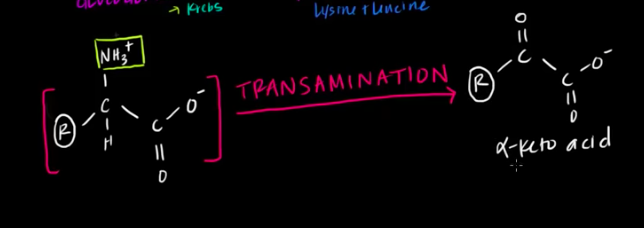 → Krebs
Lysine + Leucine
NH₃⁺
R C H C O⁻ O
TRANSAMINATION
O
R C C O⁻ O
α-keto acid